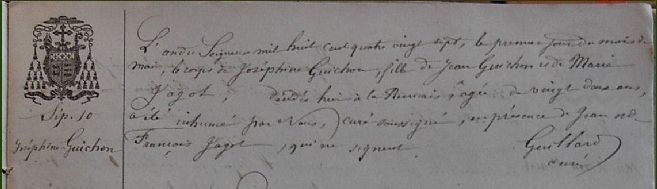 Sép. 10
Joséphine Guichon
L'an du Seigneur mil huit cent quatre vingt sept, le premier jour du mois de
mai, le corps de Joséphine Guichon, fille de Jean Guichon et de Marie
Jagot, décédée hier à la âgée de vingt deux ans,
a été inhumé par Nous, curé soussigné, en présence de Jean et de
François Jagot, qui ne signent.
Guillard
curé